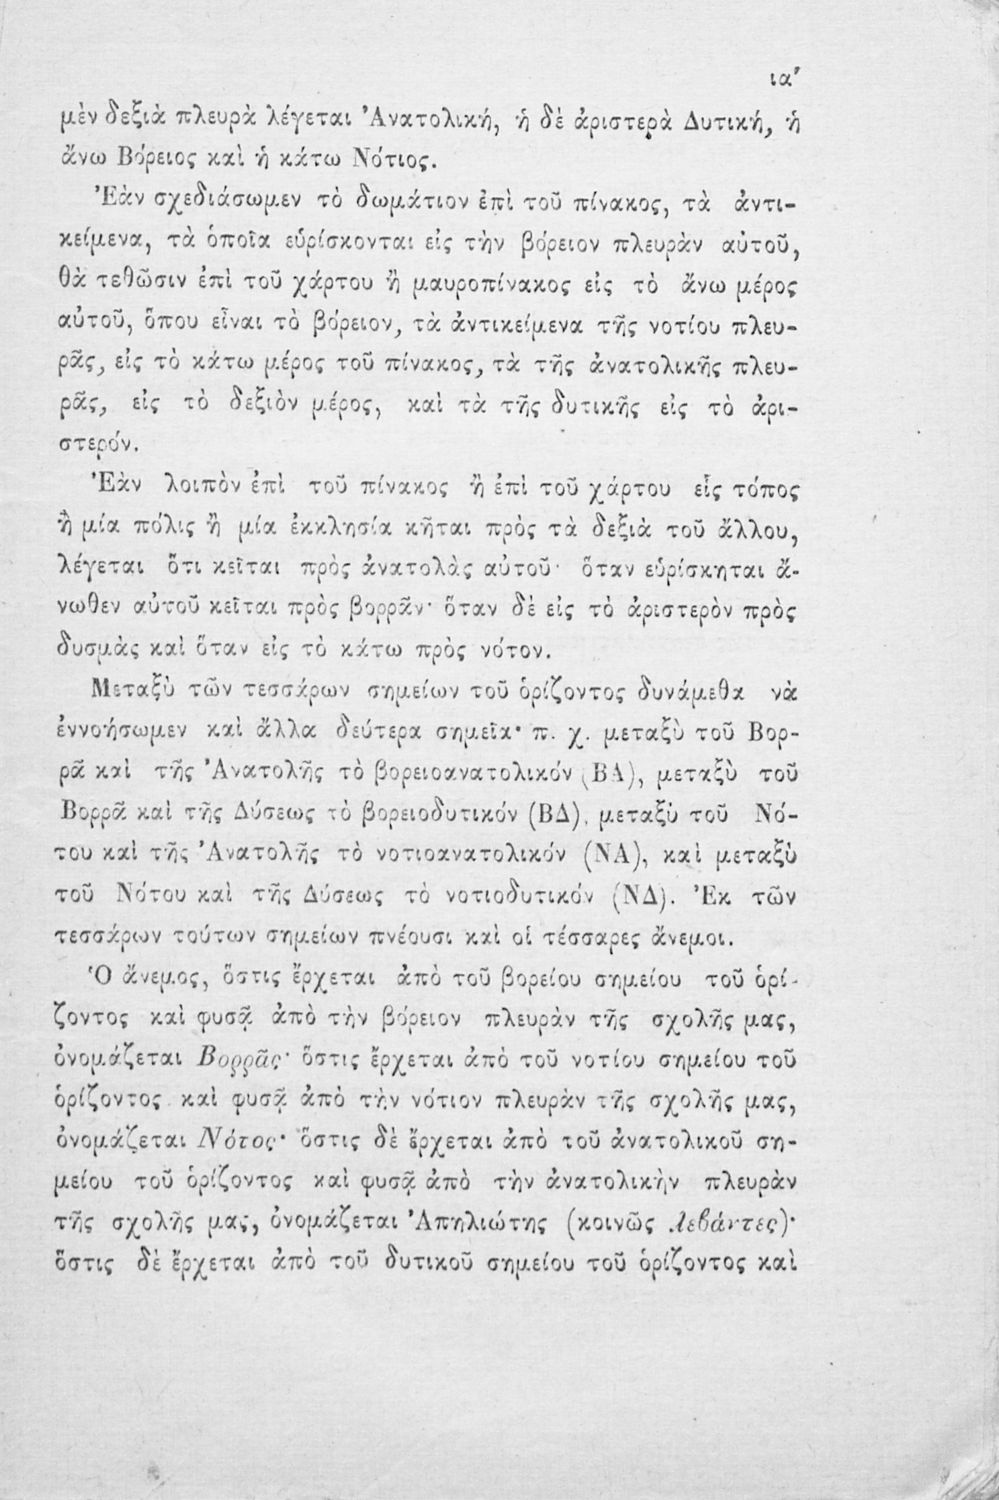 ια'
μὲν δεξιὰ πλευρὰ λέγεται Ἀνατολική, ἡ δὲ ἀριστερὰ Δυτική, ἡ
ἄνω Βόρειος καὶ ἡ κάτω Νότιος.
Ἐὰν σχεδιάσωμεν τὸ δωμάτιον ἐπὶ τοῦ πίνακος, τὰ ἀντι-
κείμενα, τὰ ὁποῖα εὑρίσκονται εἰς τὴν βόρειον πλευρὰν αὐτοῦ,
θὰ τεθῶσιν ἐπὶ τοῦ χάρτου ἢ μαυροπίνακος εἰς τὸ ἄνω μέρος
αὐτοῦ, ὅπου εἶναι τὸ βόρειον, τὰ ἀντικείμενα τῆς νοτίου πλευ-
ρᾶς, εἰς τὸ κάτω μέρος τοῦ πίνακος, τὰ τῆς ἀνατολικῆς πλευ-
ρᾶς, εἰς τὸ δεξιὸν μέρος, καὶ τὰ τῆς δυτικῆς εἰς τὸ ἀρι-
στερόν.
Ἐὰν λοιπὸν ἐπὶ τοῦ πίνακος ἢ ἐπὶ τοῦ χάρτου εἷς τόπος
ἢ μία πόλις ἢ μία ἐκκλησία κῆται πρὸς τὰ δεξιὰ τοῦ ἄλλου,
λέγεται ὅτι κεῖται πρὸς ἀνατολὰς αὐτοῦ· ὅταν εὑρίσκηται ἄ-
νωθεν αὐτοῦ κεῖται πρὸς βορρᾶν· ὅταν δὲ εἰς τὸ ἀριστερὸν πρὸς
δυσμὰς καὶ ὅταν εἰς τὸ κάτω πρὸς νότον.
Μεταξὺ τῶν τεσσάρων σημείων τοῦ ὁρίζοντος δυνάμεθα νὰ
ἐννοήσωμεν καὶ ἄλλα δεύτερα σημεῖα· π. χ. μεταξὺ τοῦ Βορ-
ρᾶ καὶ τῆς Ἀνατολῆς τὸ βορειοανατολικόν (ΒΑ), μεταξὺ τοῦ
Βορρᾶ καὶ τῆς Δύσεως τὸ βορειοδυτικόν (ΒΔ), μεταξὺ τοῦ Νό-
του καὶ τῆς Ἀνατολῆς τὸ νοτιοανατολικόν (ΝΑ), καὶ μεταξὺ
τοῦ Νότου καὶ τῆς Δύσεως τὸ νοτιοδυτικόν (ΝΔ). Ἐκ τῶν
τεσσάρων τούτων σημείων πνέουσι καὶ οἱ τέσσαρες ἄνεμοι.
Ὁ ἄνεμος, ὅστις ἔρχεται ἀπὸ τοῦ βορείου σημείου τοῦ ὁρί-
ζοντος καὶ φυσᾷ ἀπὸ τὴν βόρειον πλευρὰν τῆς σχολῆς μας,
ὀνομάζεται Βορρᾶς· ὅστις ἔρχεται ἀπὸ τοῦ νοτίου σημείου τοῦ
ὁρίζοντος καὶ φυσᾷ ἀπὸ τὴν νότιον πλευρὰν τῆς σχολῆς μας,
ὀνομάζεται Νότος· ὅστις δὲ ἔρχεται ἀπὸ τοῦ ἀνατολικοῦ ση-
μείου τοῦ ὁρίζοντος καὶ φυσᾷ ἀπὸ τὴν ἀνατολικὴν πλευρὰν
τῆς σχολῆς μας, ὀνομάζεται Ἀπηλιώτης (κοινῶς λεβάντες)·
ὅστις δὲ ἔρχεται ἀπὸ τοῦ δυτικοῦ σημείου τοῦ ὁρίζοντος καὶ